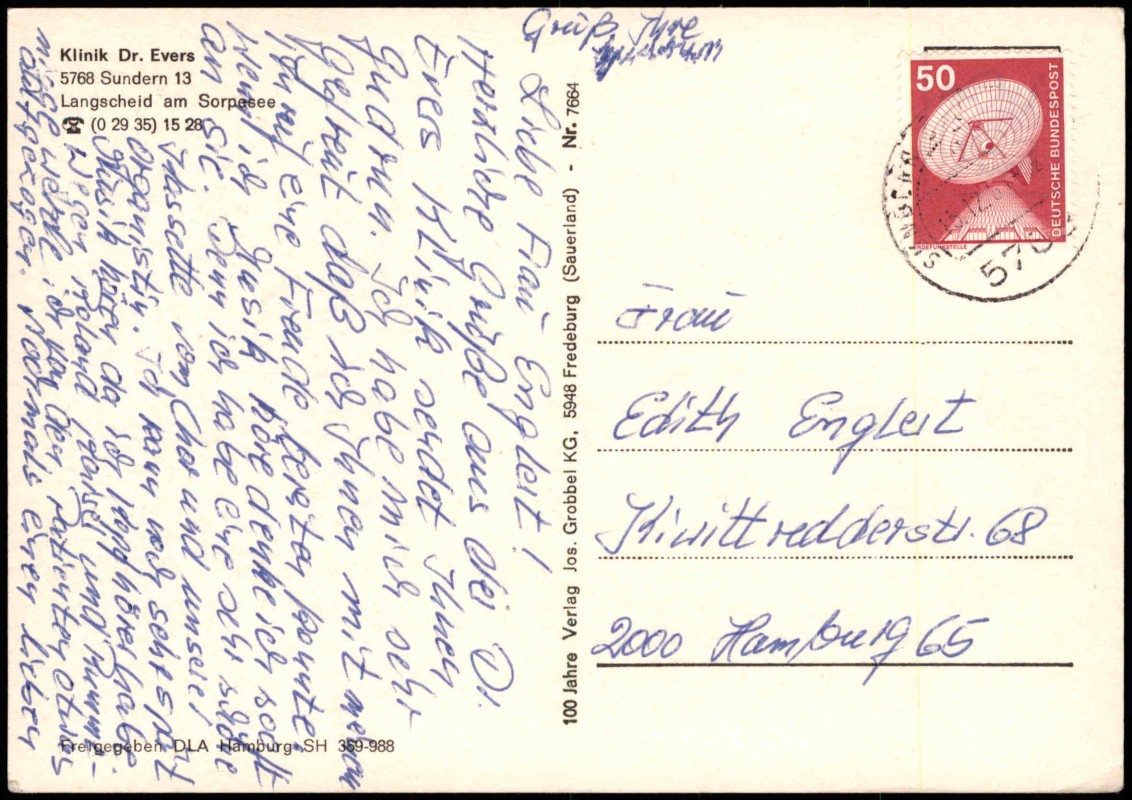 Klinik Dr. Evers
5768 Sundern 13
Langscheid am Sorpesee
☎ (0 29 35) 15 28
Liebe Frau Englert!
Herzliche Grüße aus der Dr.
Evers Klinik sendet Ihnen
Gudrun. Ich habe mich sehr
gefreut daß ich Ihnen mit meinem
eine Freude bereiten konnte.
Wenn ich Musik höre denke ich so oft
an Sie. Denn ich habe eine sehr schöne
Kassette vom Chor und unserer
Organistin. Ich kann noch sehr spät
Musik hören da ich Kopfhörer habe
Wegen Roland und
werde ich von den Patienten etwas
Nochmals einen lieben
Gruß, Ihre
100 Jahre Verlag Jos. Grobbel KG, 5948 Fredeburg (Sauerland) - Nr. 7664
50
DEUTSCHE BUNDESPOST
ERDEFUNKSTELLE
SUNDERN
Frau
Edith Englert
Kiwittredderstr. 68
2000 Hamburg 65
Freigegeben DLA Hamburg SH 359-988